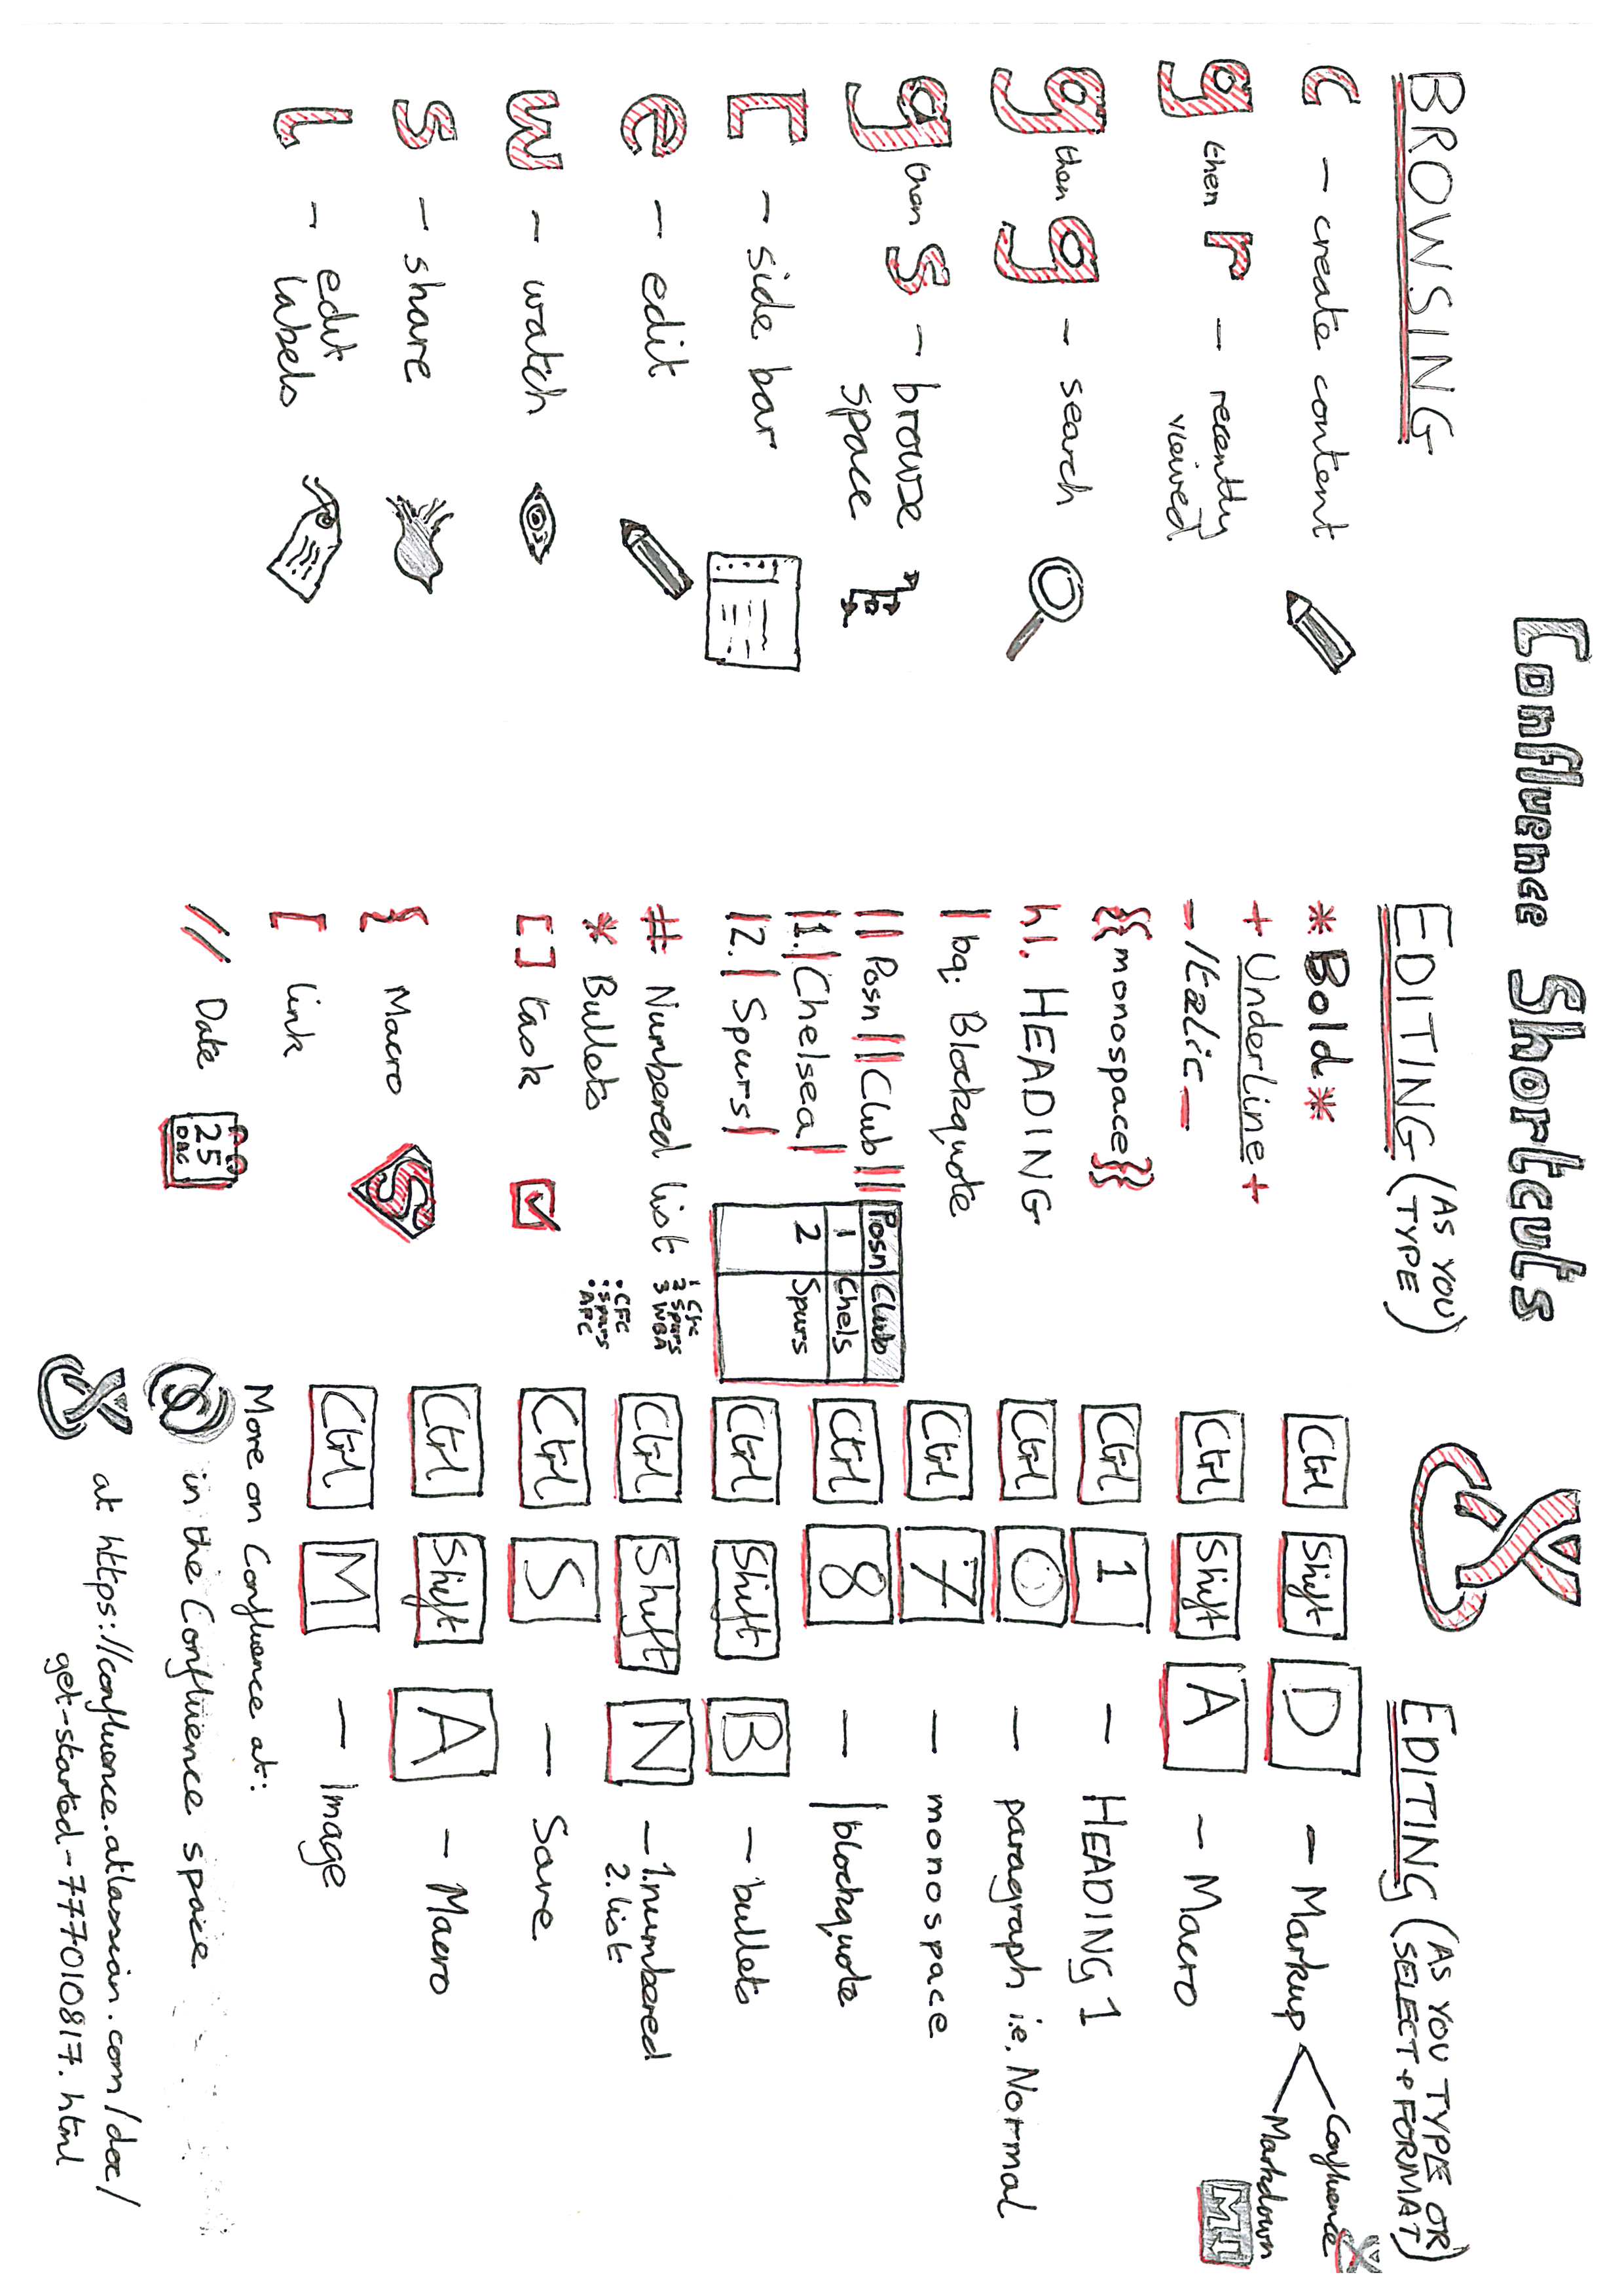 Confluence Shortcuts
BROWSING
c – create content
g then r – recently
viewed
g then g – search
g then s – browse
space
[ – side bar
e – edit
w – watch
s – share
l – edit
labels
EDITING (AS YOU
TYPE)
*Bold*
+Underline+
_Italic_
{{monospace}}
h1. HEADING
bq. Blockquote
|| Posn || Club ||
|1.| Chelsea |
|2.| Spurs |
Posn Club
1 Chels
2 Spurs
# Numbered list
1 Cfc
2 Spurs
3 WBA
* Bullets
• CFC
• Spurs
• AFC
[ ] task
{ Macro
S
[ link
// Date
25
DEC
EDITING (AS YOU TYPE OR
SELECT & FORMAT)
Ctrl Shift D – Markup
Confluence
Markdown
M↓
Ctrl Shift A – Macro
Ctrl 1 – HEADING 1
Ctrl 0 – paragraph i.e. Normal
Ctrl 7 – monospace
Ctrl 8 – |blockquote
Ctrl Shift B – bullets
Ctrl Shift N – 1. numbered
2. list
Ctrl S – Save
Ctrl Shift A – Macro
Ctrl M – Image
More on Confluence at:
in the Confluence space
at https://confluence.atlassian.com/doc/
get-started-777010817.html